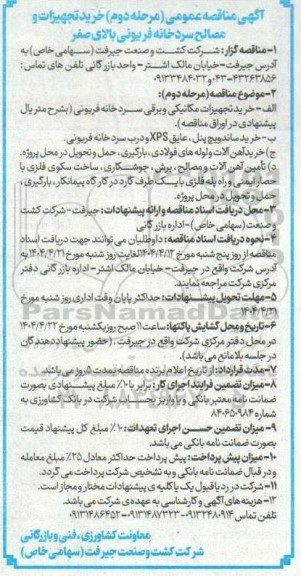 آگهی مناقصه عمومی (مرحله دوم) خرید تجهیزات و
مصالح سردخانه فریونی بالای صفر
۱- مناقصه گزار: شرکت کشت و صنعت جیرفت (سهامی خاص) به
آدرس جیرفت- خیابان مالک اشتر- واحد بازرگانی تلفن های تماس:
۰۳۴-۴۳۲۶۳۸۵۶ و ۰۹۱۳۳۴۸۴۰۳۲
۲- موضوع مناقصه (مرحله دوم):
الف- خرید تجهیزات مکانیکی و برقی سردخانه فریونی (بشرح متریال
پیشنهادی در اوراق مناقصه).
ب- خرید ساندویچ پنل، عایق XPS و درب سردخانه فریونی.
ج) خرید آهن آلات و لوله های فولادی، بارگیری، حمل و تحویل در محل پروژه.
د) تأمین آهن آلات و مصالح، برش، جوشکاری، ساخت سکوی فلزی با
حصار ایمنی و راه پله فلزی با یک طرف کارد در کارگاه پیمانکار، بارگیری،
حمل و تحویل در محل پروژه.
۳- محل دریافت اسناد مناقصه و ارائه پیشنهادات: جیرفت- شرکت کشت
و صنعت (سهامی خاص)- اداره بازرگانی
۴- نحوه دریافت اسناد مناقصه: داوطلبان می توانند جهت دریافت اسناد
مناقصه از روز پنج شنبه مورخ ۱۴۰۴/۴/۱۲ لغایت روز شنبه مورخ ۱۴۰۴/۴/۲۱ به
آدرس شرکت واقع در جیرفت- خیابان مالک اشتر- اداره بازرگانی دفتر
مرکزی شرکت مراجعه نمایند.
۵- مهلت تحویل پیشنهادات: حداکثر پایان وقت اداری روز شنبه مورخ
۱۴۰۴/۴/۲۱
۶- تاریخ و محل گشایش پاکتها: ساعت ۱۱ صبح روز یکشنبه مورخ ۱۴۰۴/۴/۲۲
در محل دفتر مرکزی شرکت واقع در جیرفت. (حضور پیشنهاددهندگان
در جلسه بلامانع می باشد).
۷- مدت قرارداد: از تاریخ اعلام برنده مناقصه بمدت ۵ روز می باشد.
۸- میزان تضمین فرایند ارجاع کار: برابر با ۱۰٪ مبلغ پیشنهادی بصورت
ضمانت نامه معتبر بانکی و یا واریز بحساب شرکت در بانک کشاورزی به
شماره ۸۴۰۶۵۰۹۸۴
۹- میزان تضمین حسن اجرای تعهدات: ۱۰٪ مبلغ کل پیشنهاد قیمت
بصورت ضمانت نامه بانکی می باشد.
۱۰- میزان پیش پرداخت: پیش پرداخت حداکثر معادل ۲۵٪ مبلغ معامله
و در قبال ضمانت نامه بانکی و به تشخیص شرکت پرداخت می گردد.
۱۱- شرکت در رد یا قبول یک یا کلیه ی پیشنهادات مختار و مجاز است.
۱۲- هزینه های آگهی و کارشناسی به عهده ی شرکت می باشد.
تلفن تماس ۰۹۱۳۲۴۸۰۹۱۴-۰۹۱۳۱۴۸۷۳۲۳-۰۹۱۳۱۴۸۶۴۵۲
معاونت کشاورزی، فنی و بازرگانی
شرکت کشت و صنعت جیرفت (سهامی خاص)